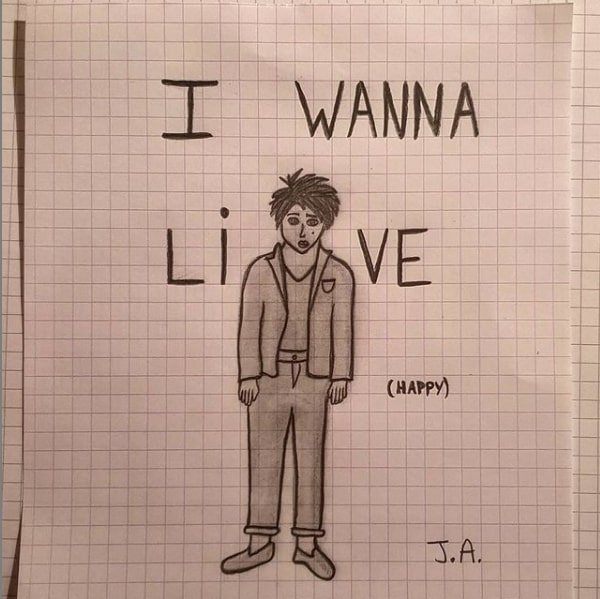 I WANNA
Li VE
(HAPPY)
J.A.